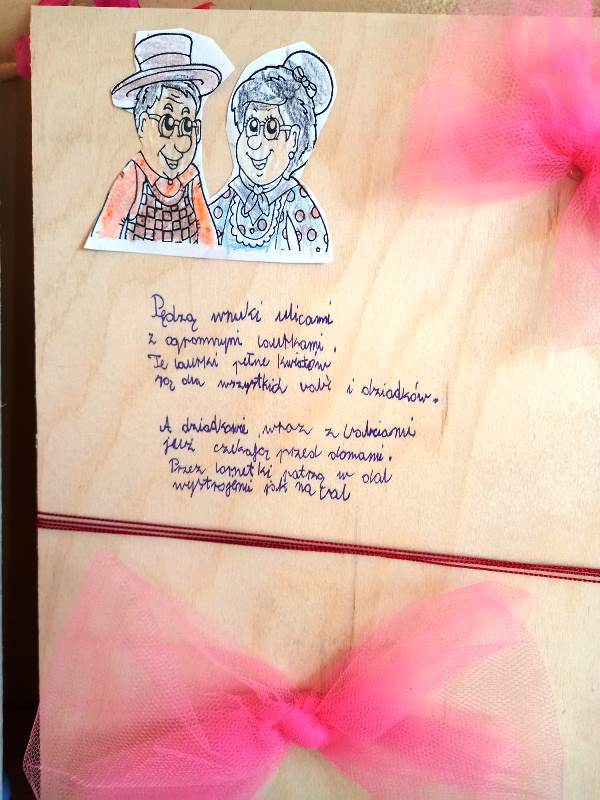 Pędzą wnuki ulicami
z ogromnymi laurkami.
Te laurki pełne kwiatów
są dla wszystkich babć i dziadków.
A dziadkowie wraz z babciami
już czekają przed domami.
Przez lornetki patrzą w dal
wystrojeni jak na bal